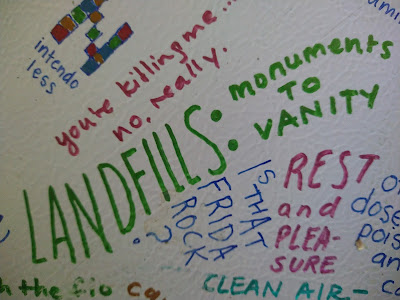 intendo
less
you're killing me...
no, really.
LANDFILLS:
monuments
TO
VANITY
IS THAT
FRIDA
ROCK
?
REST
and
PLEA-
SURE
dose
an
h the fio Ca.
CLEAN AIR –